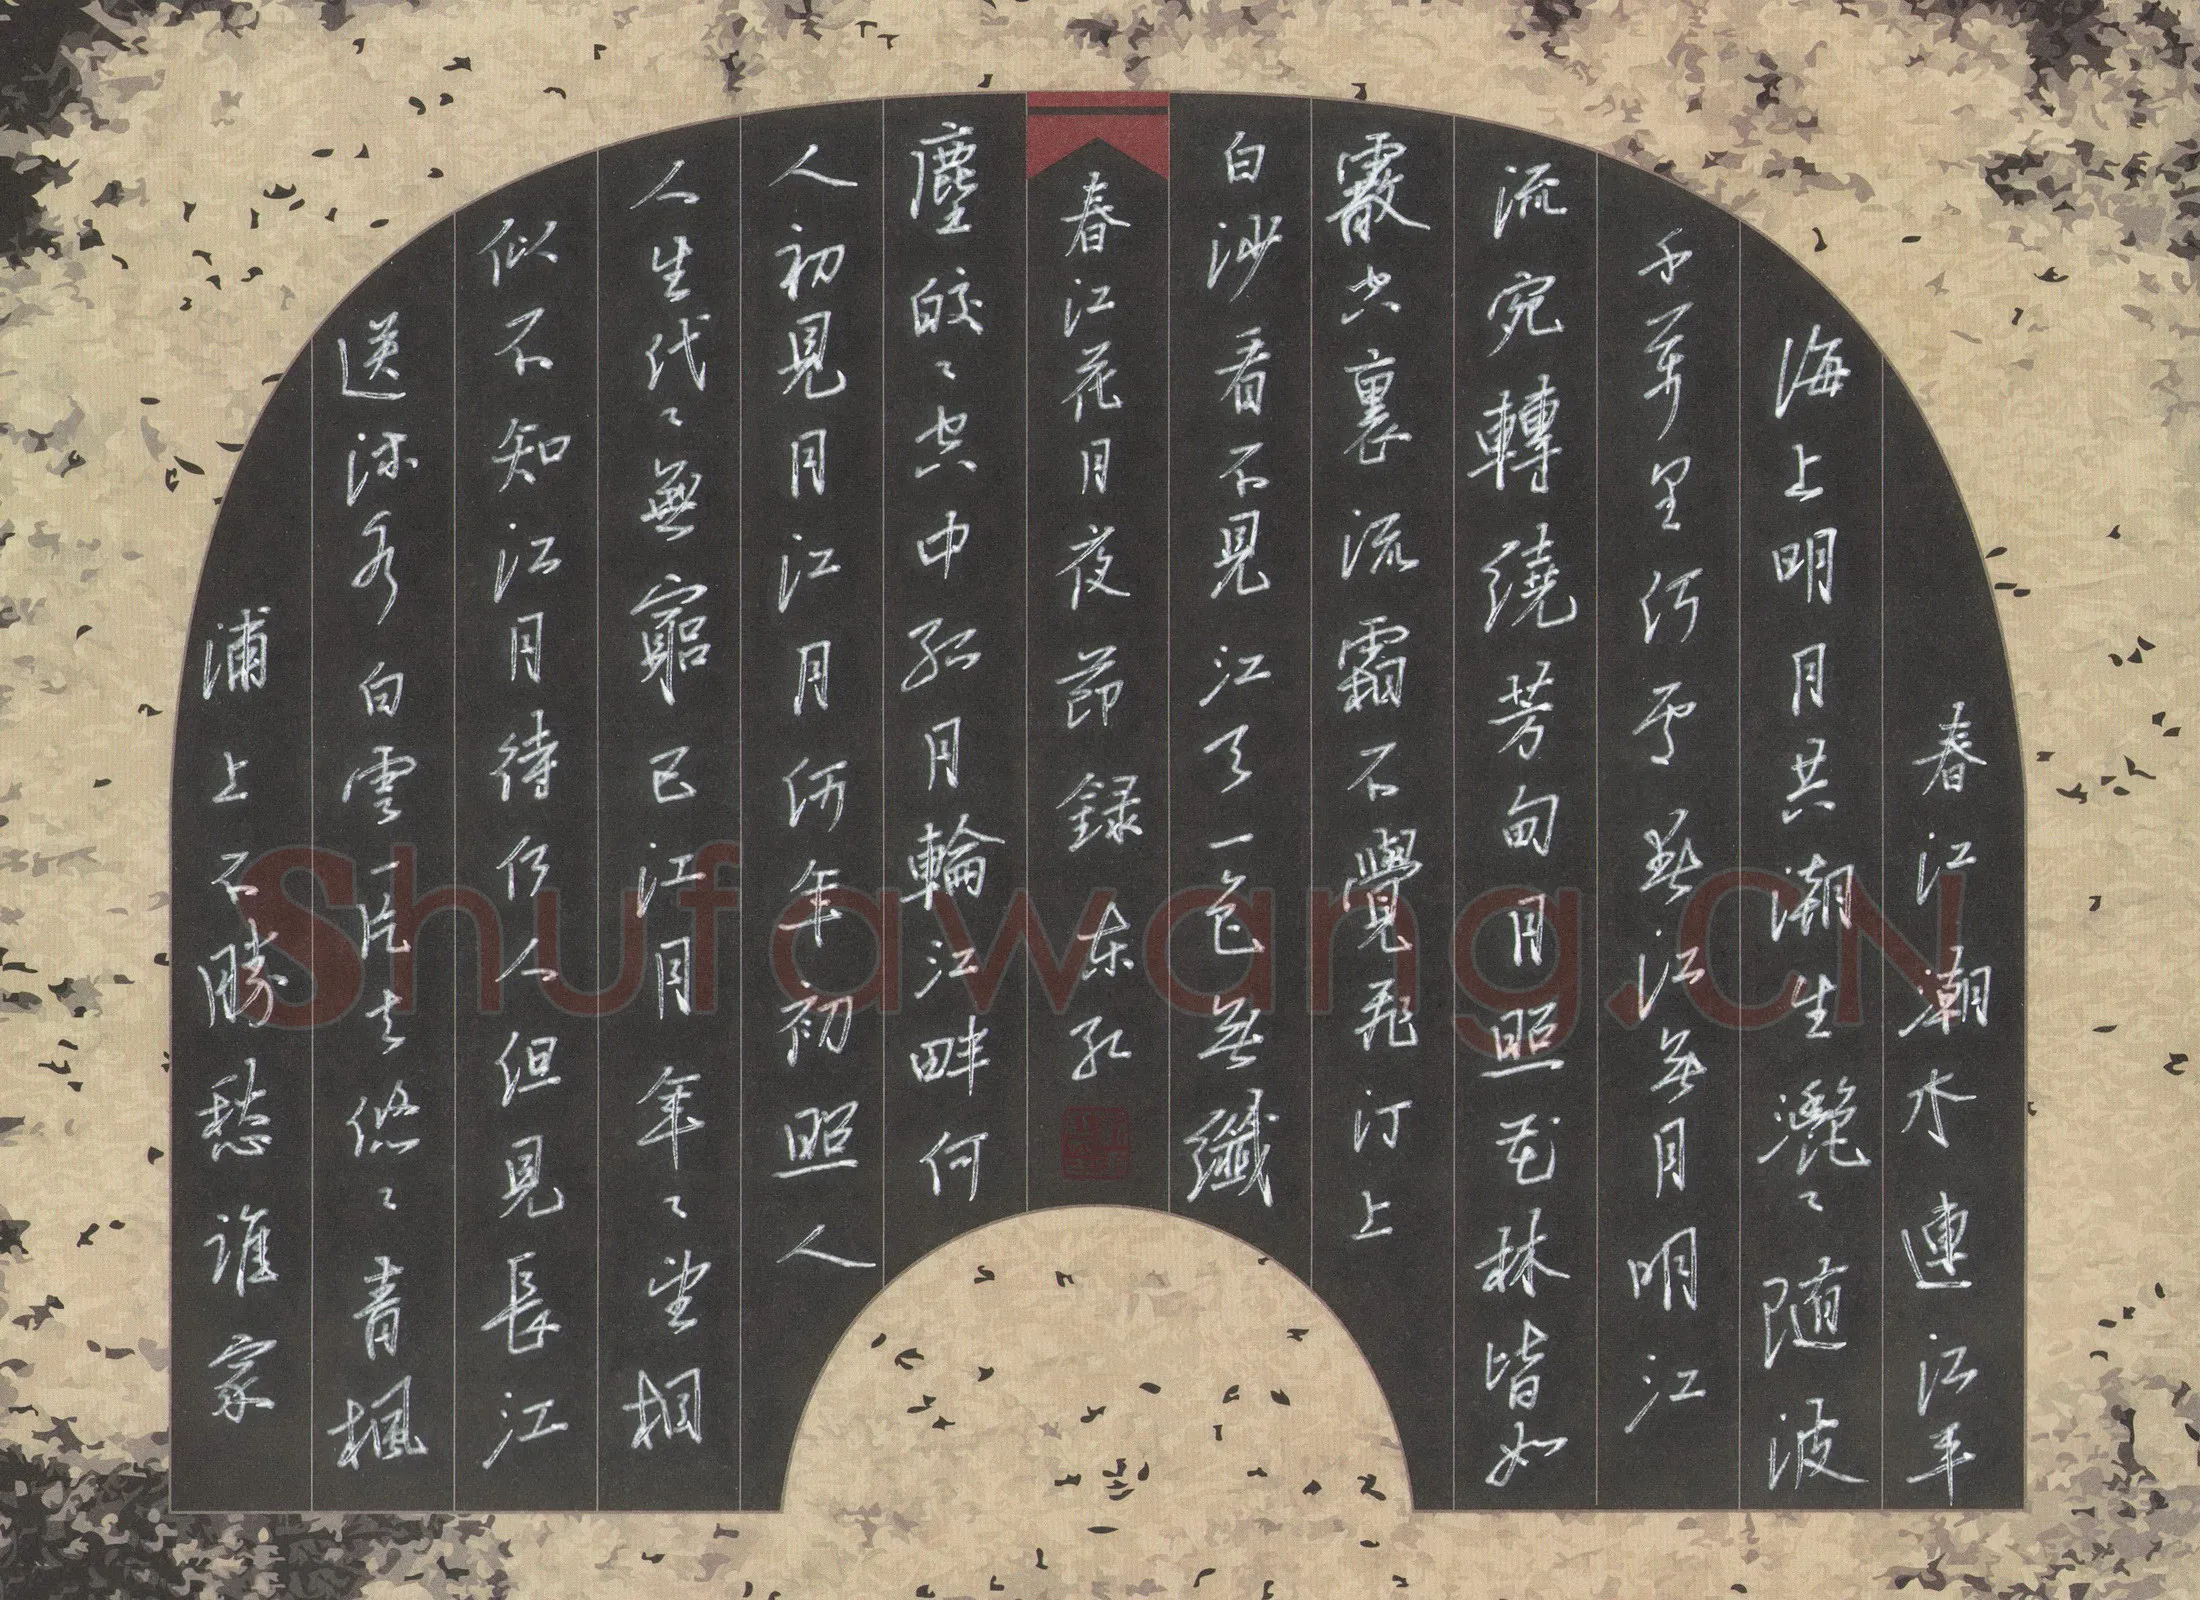 春江潮水連江平
海上明月共潮生灩〻随波
千萬里何處春江無月明江
流宛轉繞芳甸月照花林皆如
霰空裏流霜不覺飛汀上
白沙看不見江天一色無纖
春江花月夜節録 东
塵皎〻空中孤月輪江畔何
人初見月江月何年初照人
人生代〻無窮已江月年〻望相
似不知江月待何人但見長江
送流水白雲一片去悠〻青楓
浦上不勝愁誰家
Shufawang.CN